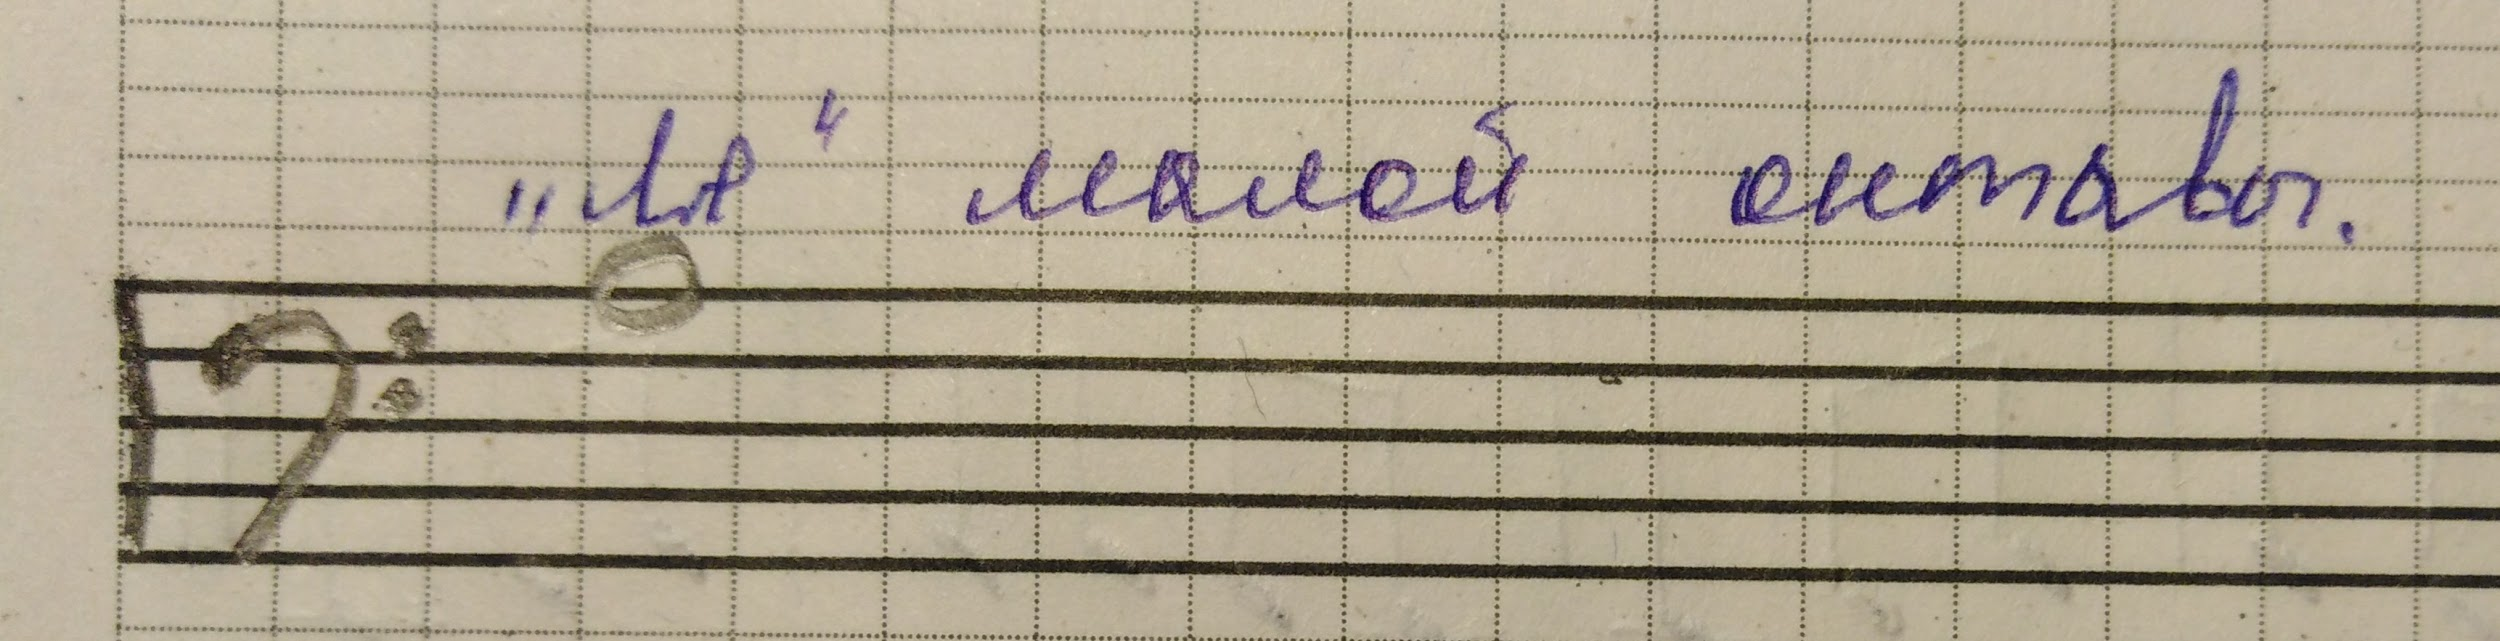 „Ля“ малой октавы.